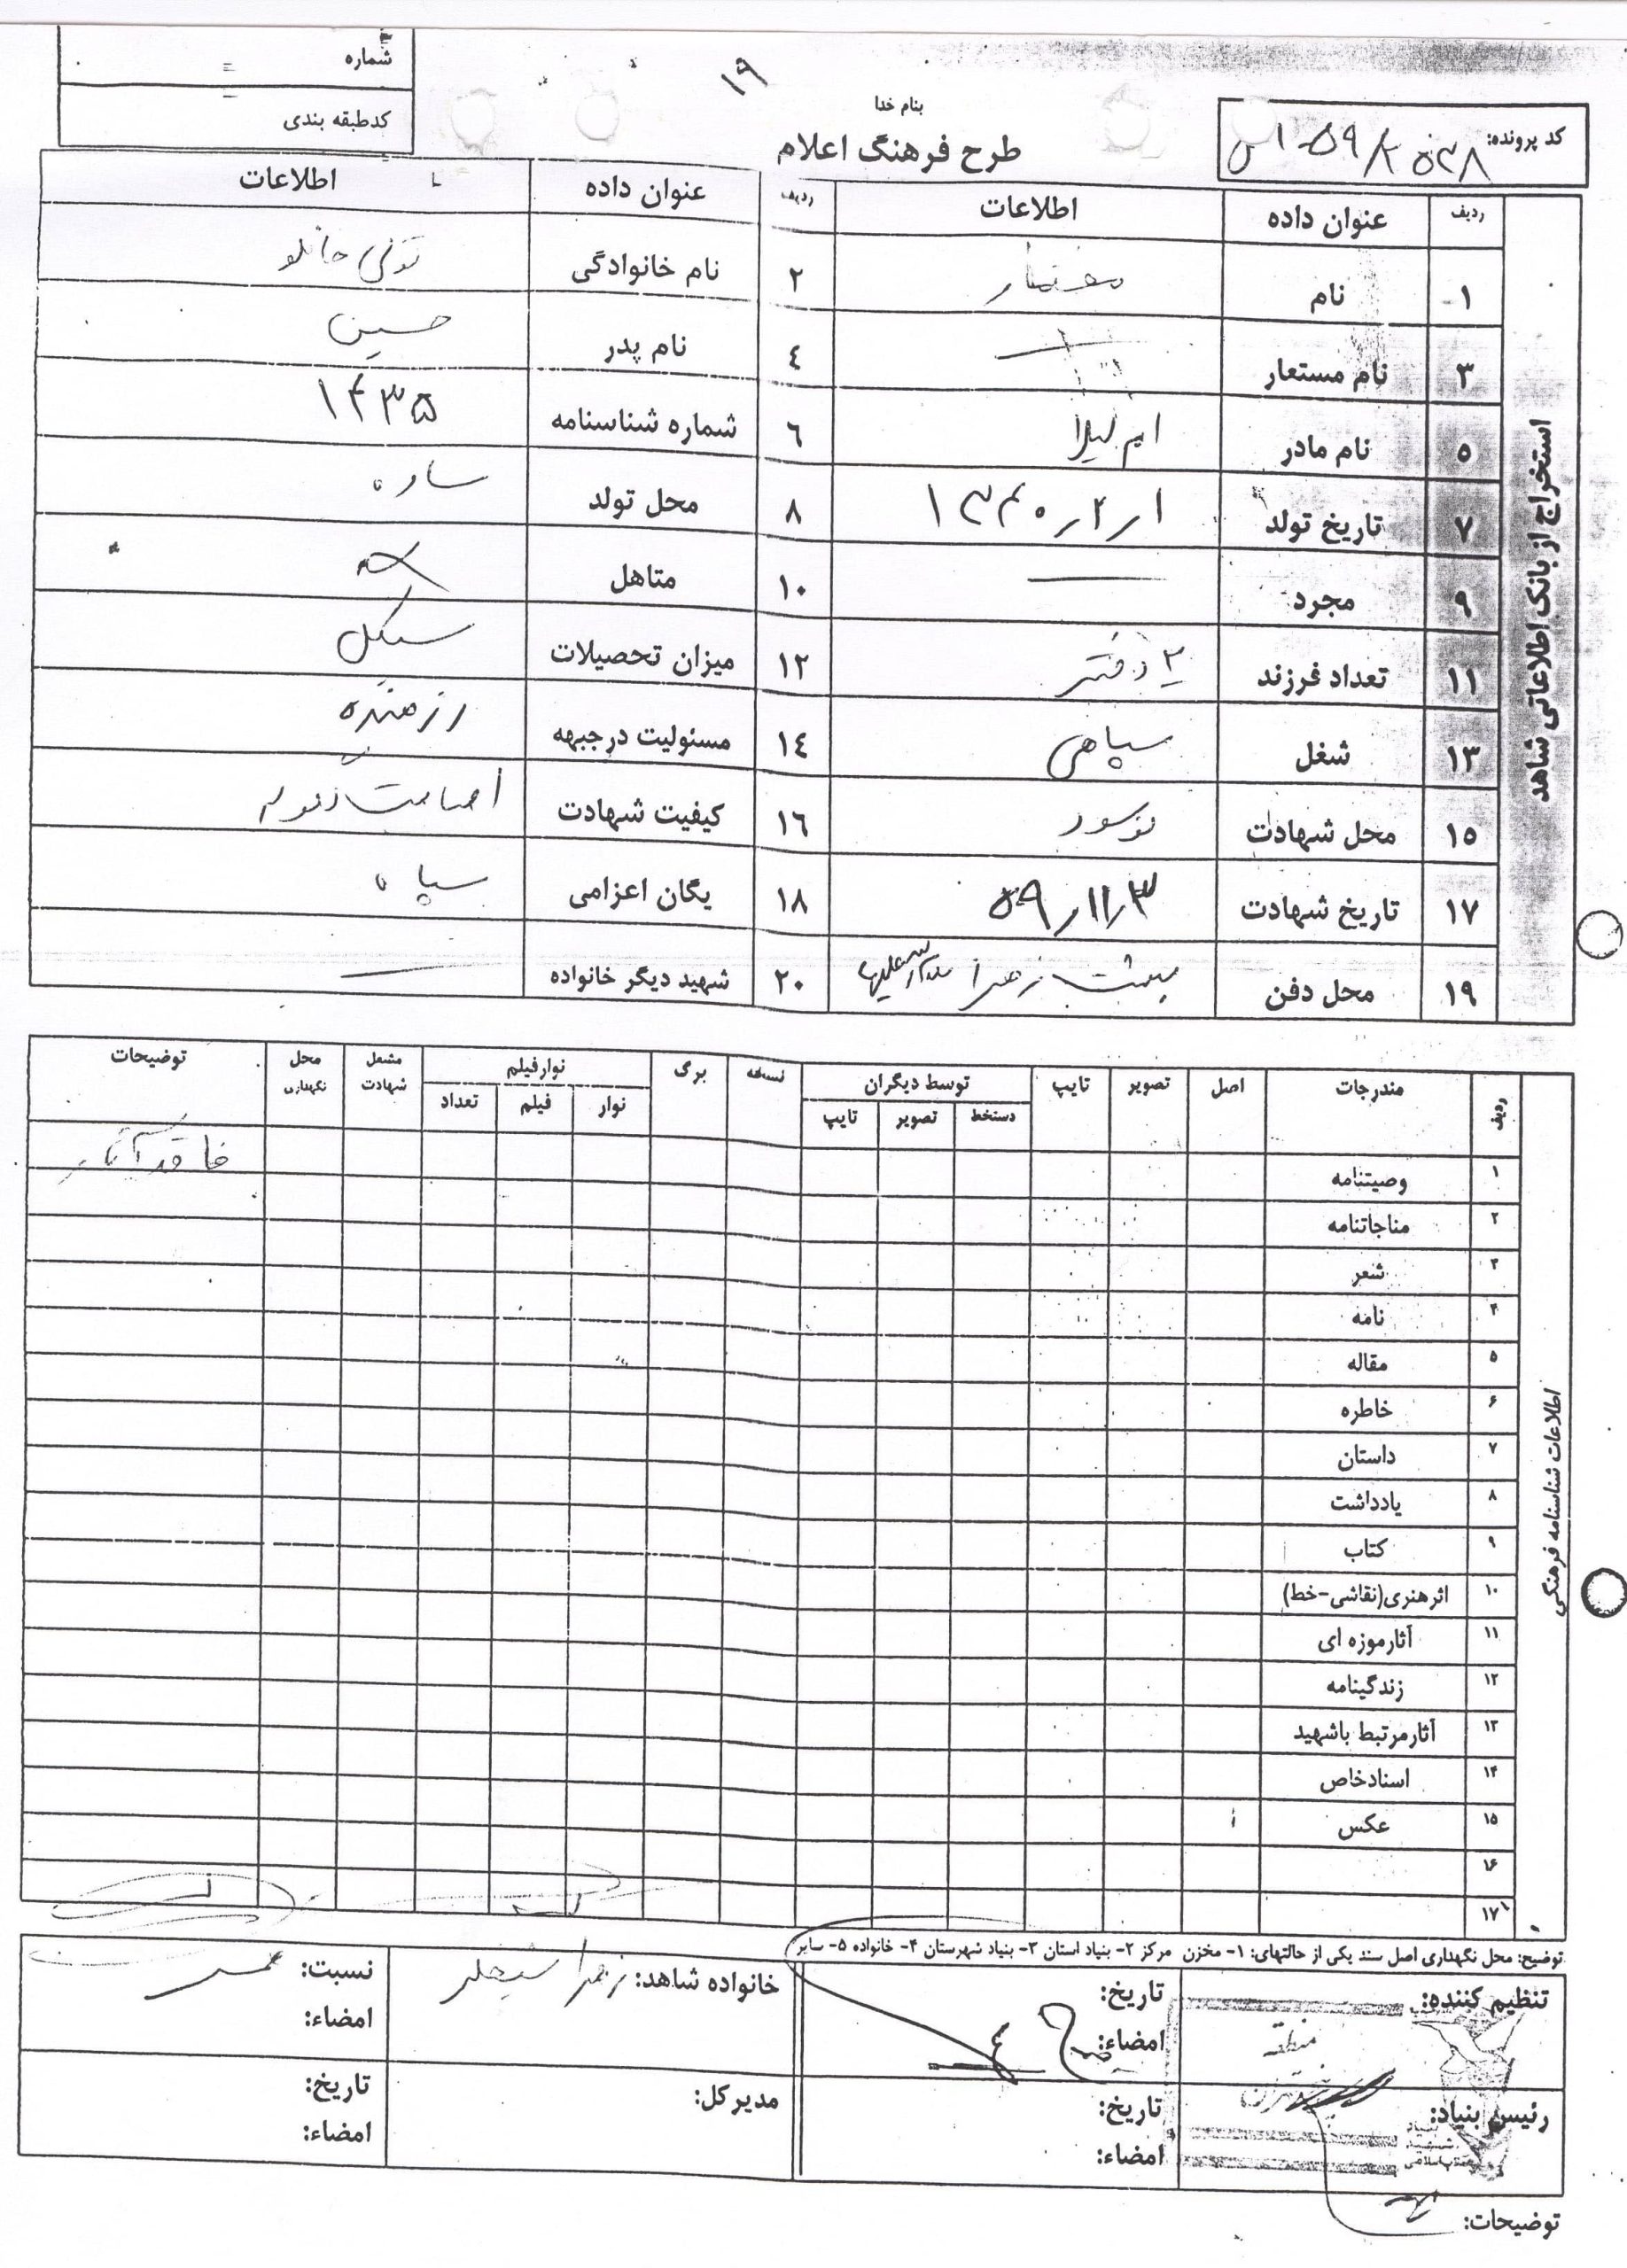 شماره
کدطبقه بندی
۱۹
بنام خدا
طرح فرهنگ اعلام
کد پرونده:
ردیف عنوان داده اطلاعات ردیف عنوان داده اطلاعات
۱ نام ۲ نام خانوادگی
۳ نام مستعار — ٤ نام پدر حسین
۵ نام مادر ام لیلا ٦ شماره شناسنامه ۱۴۳۵
۷ تاریخ تولد ۱۳۴۰٫۲٫۱ ۸ محل تولد ساوه
۹ مجرد — ۱۰ متاهل
۱۱ تعداد فرزند ۲ دختر ۱۲ میزان تحصیلات سیکل
۱۳ شغل سپاهی ۱٤ مسئولیت درجبهه رزمنده
۱۵ محل شهادت نوسود ۱٦ کیفیت شهادت اصابت گلوله
۱۷ تاریخ شهادت ۵۹٫۱۱٫۳ ۱۸ یگان اعزامی سپاه
۱۹ محل دفن بهشت زهرا سلام الله علیها ۲۰ شهید دیگر خانواده —
استخراج از بانک اطلاعاتی شاهد
ردیف مندرجات اصل تصویر تایپ توسط دیگران نسخه برگ نوارفیلم مشعل شهادت محل نگهداری توضیحات
دستخط تصویر تایپ نوار فیلم تعداد
۱ وصیتنامه فاقد آثار
۲ مناجاتنامه
۳ شعر
۴ نامه
۵ مقاله
۶ خاطره
۷ داستان
۸ یادداشت
۹ کتاب
۱۰ اثرهنری(نقاشی-خط)
۱۱ آثارموزه ای
۱۲ زندگینامه
۱۳ آثارمرتبط باشهید
۱۴ اسنادخاص
۱۵ عکس
۱۶
۱۷
اطلاعات شناسنامه فرهنگی
توضیح: محل نگهداری اصل سند یکی از حالتهای: ۱- مخزن مرکز ۲- بنیاد استان ۳- بنیاد شهرستان ۴- خانواده ۵- سایر
تنظیم کننده: تاریخ: خانواده شاهد: زهرا نسبت: همسر
منطقه
امضاء: امضاء:
رئیس بنیاد: تاریخ: مدیرکل: تاریخ:
امضاء: امضاء:
بنیاد شهید انقلاب اسلامی
توضیحات: